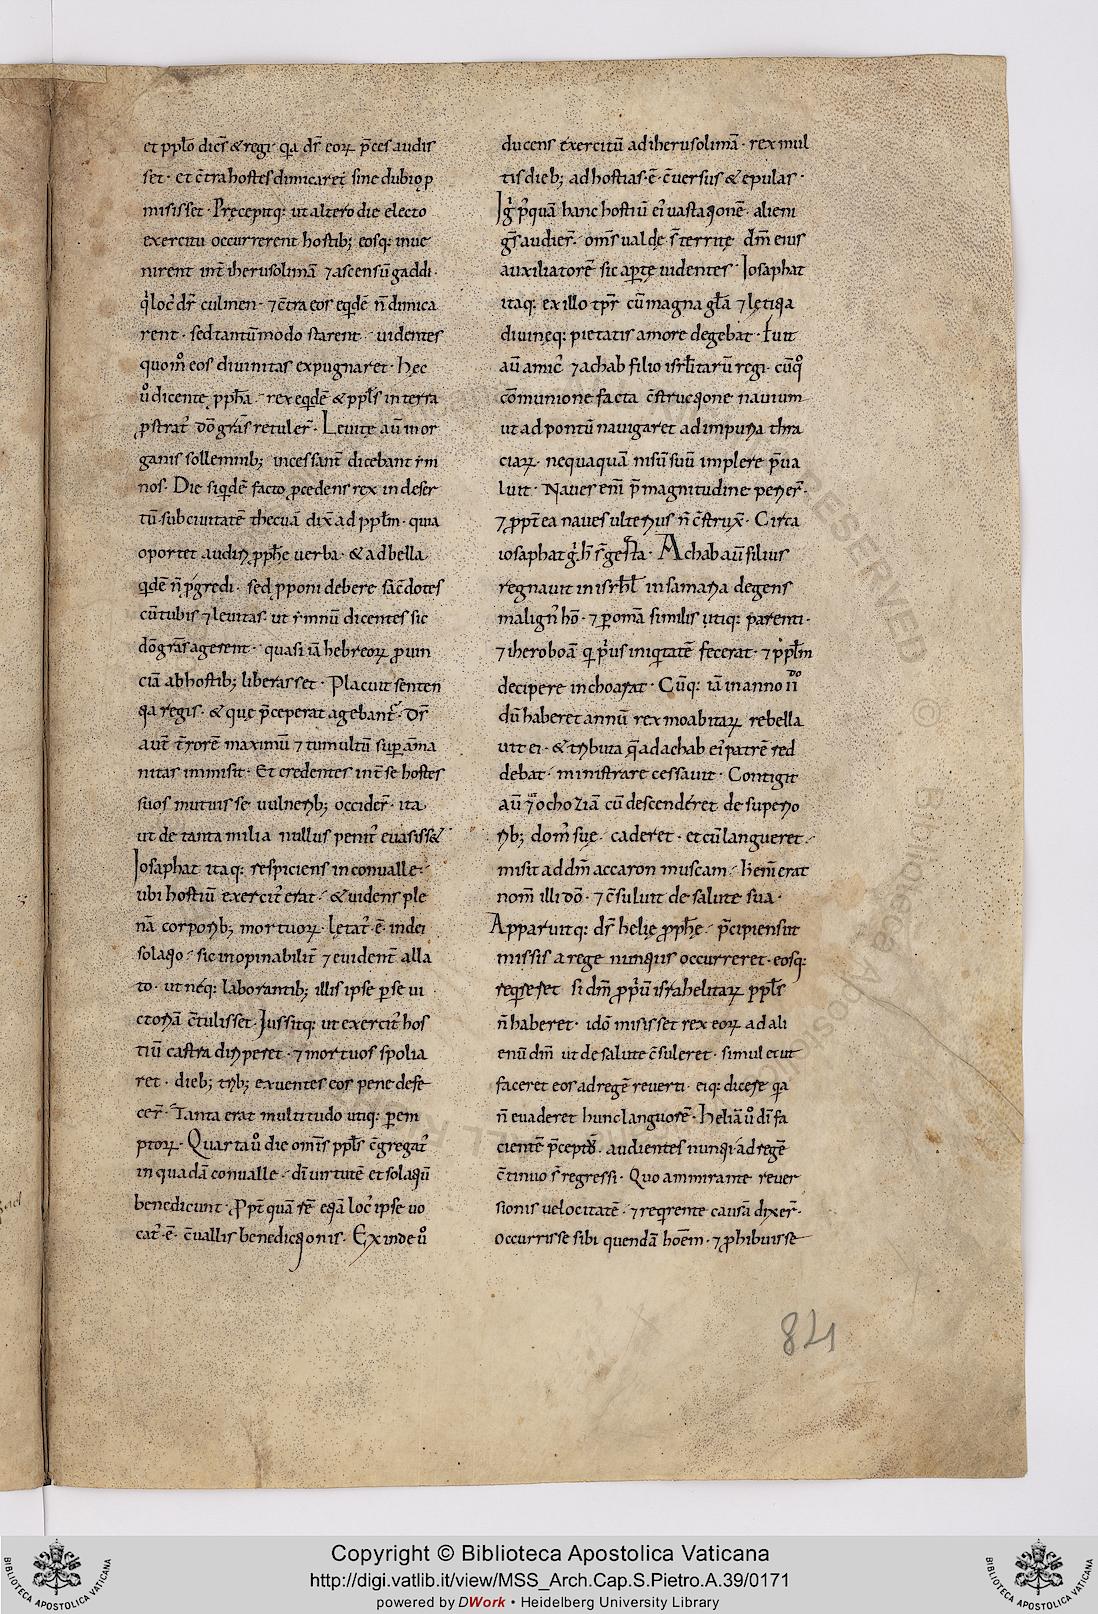 et pplo dicens & regi qa ds eorum pces audis
set · et contra hostes dimicaret sine dubio p
misisset · Precepitq; ut altero die electo
exercitu occurrerent hostib; eosq; inue
nirent int iherusolimā ⁊ ascensū gaddi ·
q loc dr culmen · ⁊ ctra eos eqdē n dimica
rent · sed tantūmodo starent · uidentes
quom eos diuinitas expugnaret · hęc
u dicente ppha · rex eqdē & ppls in terra
pstrat do gras retuler · Leuitę aū in or
ganis sollemnib; incessant dicebant ym
nos · Die siqdē facto pcedens rex in deser
tū sub ciuitatē thecuā dix ad pplm · quia
oportet audiri pphę uerba · & ad bella
qdē n pgredi · sed pponi debere sacdotes
cū tubis ⁊ leuitas · ut ymnū dicentes sic
do gras agerent · quasi iā hebreorum prouin
ciā ab hostib; liberasset · Placuit senten
tia regis · & quę pceperat agebant · Ds
aut trorē maximū ⁊ tumultū sup ama
nitas immisit · Et credentes int se hostes
suos mutuis se uulnerib; occider · ita
ut de tanta milia nullus penit euasiss&
Iosaphat itaq; respiciens in conualle ·
ubi hostiū exercit erat · & uidens ple
nā corporib; mortuorum · lętat ē inde
solatio · sic inopinabilit ⁊ euident alla
to · ut neq; laborantib; illis ipse p se ui
ctoriā ctulisset · Iussitq; ut exercit hos
tiū castra diriperet · ⁊ mortuos spolia
ret · dieb; trib; exuentes eos pene defe
cer · Tanta erat multitudo utiq; perem
ptorum · Quarta u die omis ppls cgregat
in quadā conualle · di uirtutē et solatiū
benedicunt · Propt quā rē eqā loc ipse uo
cat ē · cuallis benedictionis · Exinde u
ducens exercitū ad iherusolimā · rex mul
tis dieb; ad hostias · ē · cuersus & epulas ·
Ig pquā hanc hostiū ei uastationē · alieni
gs audier · oms ualde st territę dm eius
auxiliatorē sic apte uidentes · Iosaphat
itaq; ex illo tpr cū magna gla ⁊ lętitia
diuineq; pietatis amore degebat · Fuit
aū amic ⁊ achab filio isrlitarū regi · cūq
cōmunione facta cstructione nauium
ut ad pontū nauigaret ad impuria thra
ciarum · nequaquā nisū suū implere pua
luit · Naues eni p magnitudine perier ·
⁊ ppt ea naues ulterius n cstrux · Circa
iosaphat g h st gesta · Achab aū filius
regnauit in isrhl in samaria degens
malign ho · ⁊ p omā similis utiq; parenti ·
⁊ iheroboā q pus iniqitatē fecerat · ⁊ pplm
decipere inchoarat · Cūq; iā in anno II do
dū haberet annū rex moabitarum rebella
uit ei · & tributa q ad achab ei patrē red
debat · ministrare cessauit · Contigit
aū ochoziā cū descenderet de superio
rib; dom suę · caderet · et cū langueret ·
misit ad dm accaron muscam · h eni erat
nom illi do · ⁊ csuluit de salute sua ·
Apparuitq; ds helię pphę · pcipiens ut
missis a rege nuntiis occurreret · eosq;
reqreret si dm ppiū israhelitarum ppls
n haberet · ido misisset rex eorum ad ali
enū dm ut de salute csuleret · simul et ut
faceret eos ad regē reuerti · eiq; dicere qa
n euaderet hunc languorē · Heliā u di fa
cientē pceptū · audientes nuntii ad regē
ctinuo st regressi · Quo ammirante reuer
sionis uelocitatē · ⁊ reqrente causā dixer ·
occurrisse sibi quendā hoēm · ⁊ phibuisse
84
Copyright © Biblioteca Apostolica Vaticana
http://digi.vatlib.it/view/MSS_Arch.Cap.S.Pietro.A.39/0171
powered by DWork • Heidelberg University Library
BIBLIOTECA APOSTOLICA VATICANA
BIBLIOTECA APOSTOLICA VATICANA